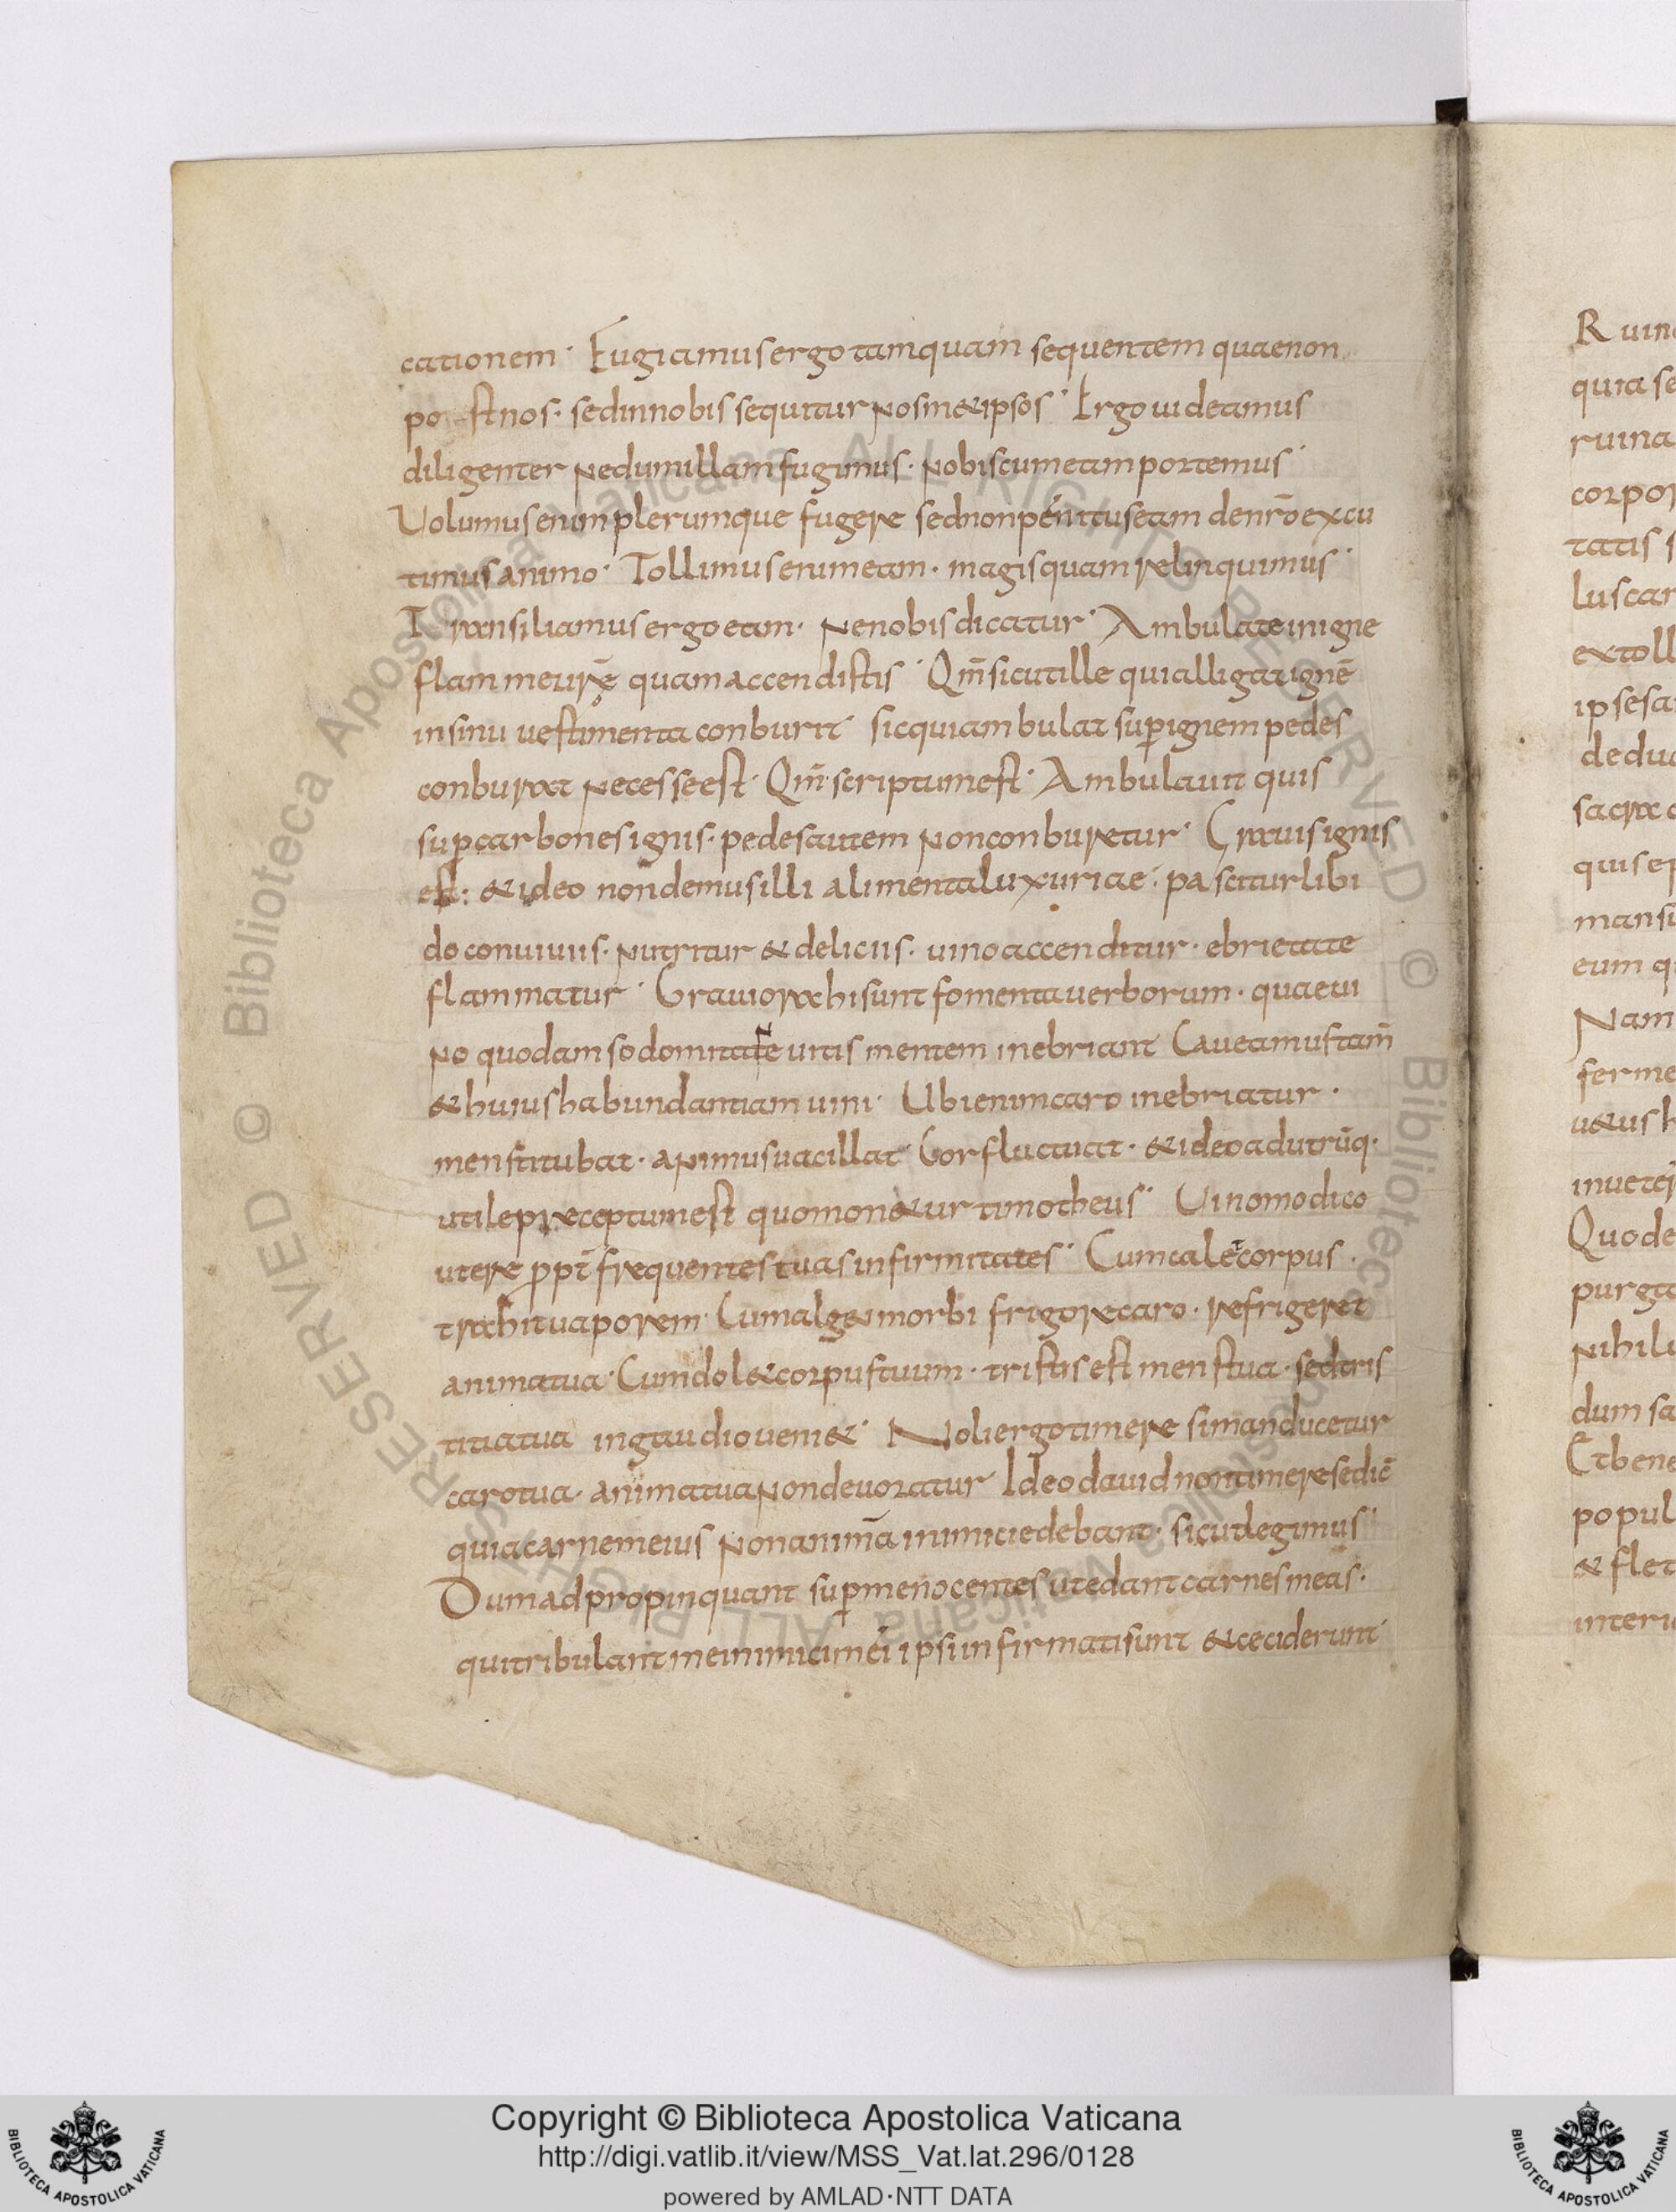 cationem · Fugiamus ergo tamquam sequentem quae non
post nos · sed in nobis sequitur nosmet ipsos · Ergo uideamus
diligenter ne dum illam fugimus · nobiscum eam portemus ·
Uolumus enim plerumque fugere sed non penitus eam de nr̄o excu
timus animo · Tollimus enim eam · magis quam relinquimus ·
Transiliamus ergo eam · ne nobis dicatur · Ambulate in igne
flamme urę̄ quam accendistis · Qm̄ sicut ille qui alligat ignē
in sinu uestimenta conburit sic qui ambulat sup̄ ignem pedes
conburat necesse est · Qm̄ scriptum est · Ambulauit quis
sup̄ carbones ignis · pedes autem non conburetur · Grauis ignis
est : & ideo non demus illi alimenta luxuriae · pascitur libi
do conuiuiis · nutritur & deliciis · uino accenditur · ebrietate
flammatur · Grauiora his sunt fomenta uerborum · quae ui
no quodam sodomitane uitis mentem inebriant Caueamus tam̄
& huius habundantiam uini · Ubi enim caro inebriatur ·
mens titubat · animus uacillat · Cor fluctuat · & ideo ad utrūq ·
utile preceptum est quo mon&ur timotheus · Uino modico
utere p̄pt̄ frequentes tuas infirmitates · Cum calet corpus ·
trahit uaporem · Cum alg& morbi frigore caro · refrigeret
anima tua · Cum dol& corpus tuum · tristis est mens tua · sed tris
titia tua in gaudio ueni& · Noli ergo timere si manducetur
caro tua · anima tua non deuoratur Ideo dauid non timere se dic̄
quia carnem eius non animā inimici edebant · sicut legimus
Dum adpropinquant sup̄ me nocentes ut edant carnes meas ·
qui tribulant me inimici mei ipsi infirmati sunt & ceciderunt
Copyright © Biblioteca Apostolica Vaticana
http://digi.vatlib.it/view/MSS_Vat.lat.296/0128
powered by AMLAD·NTT DATA